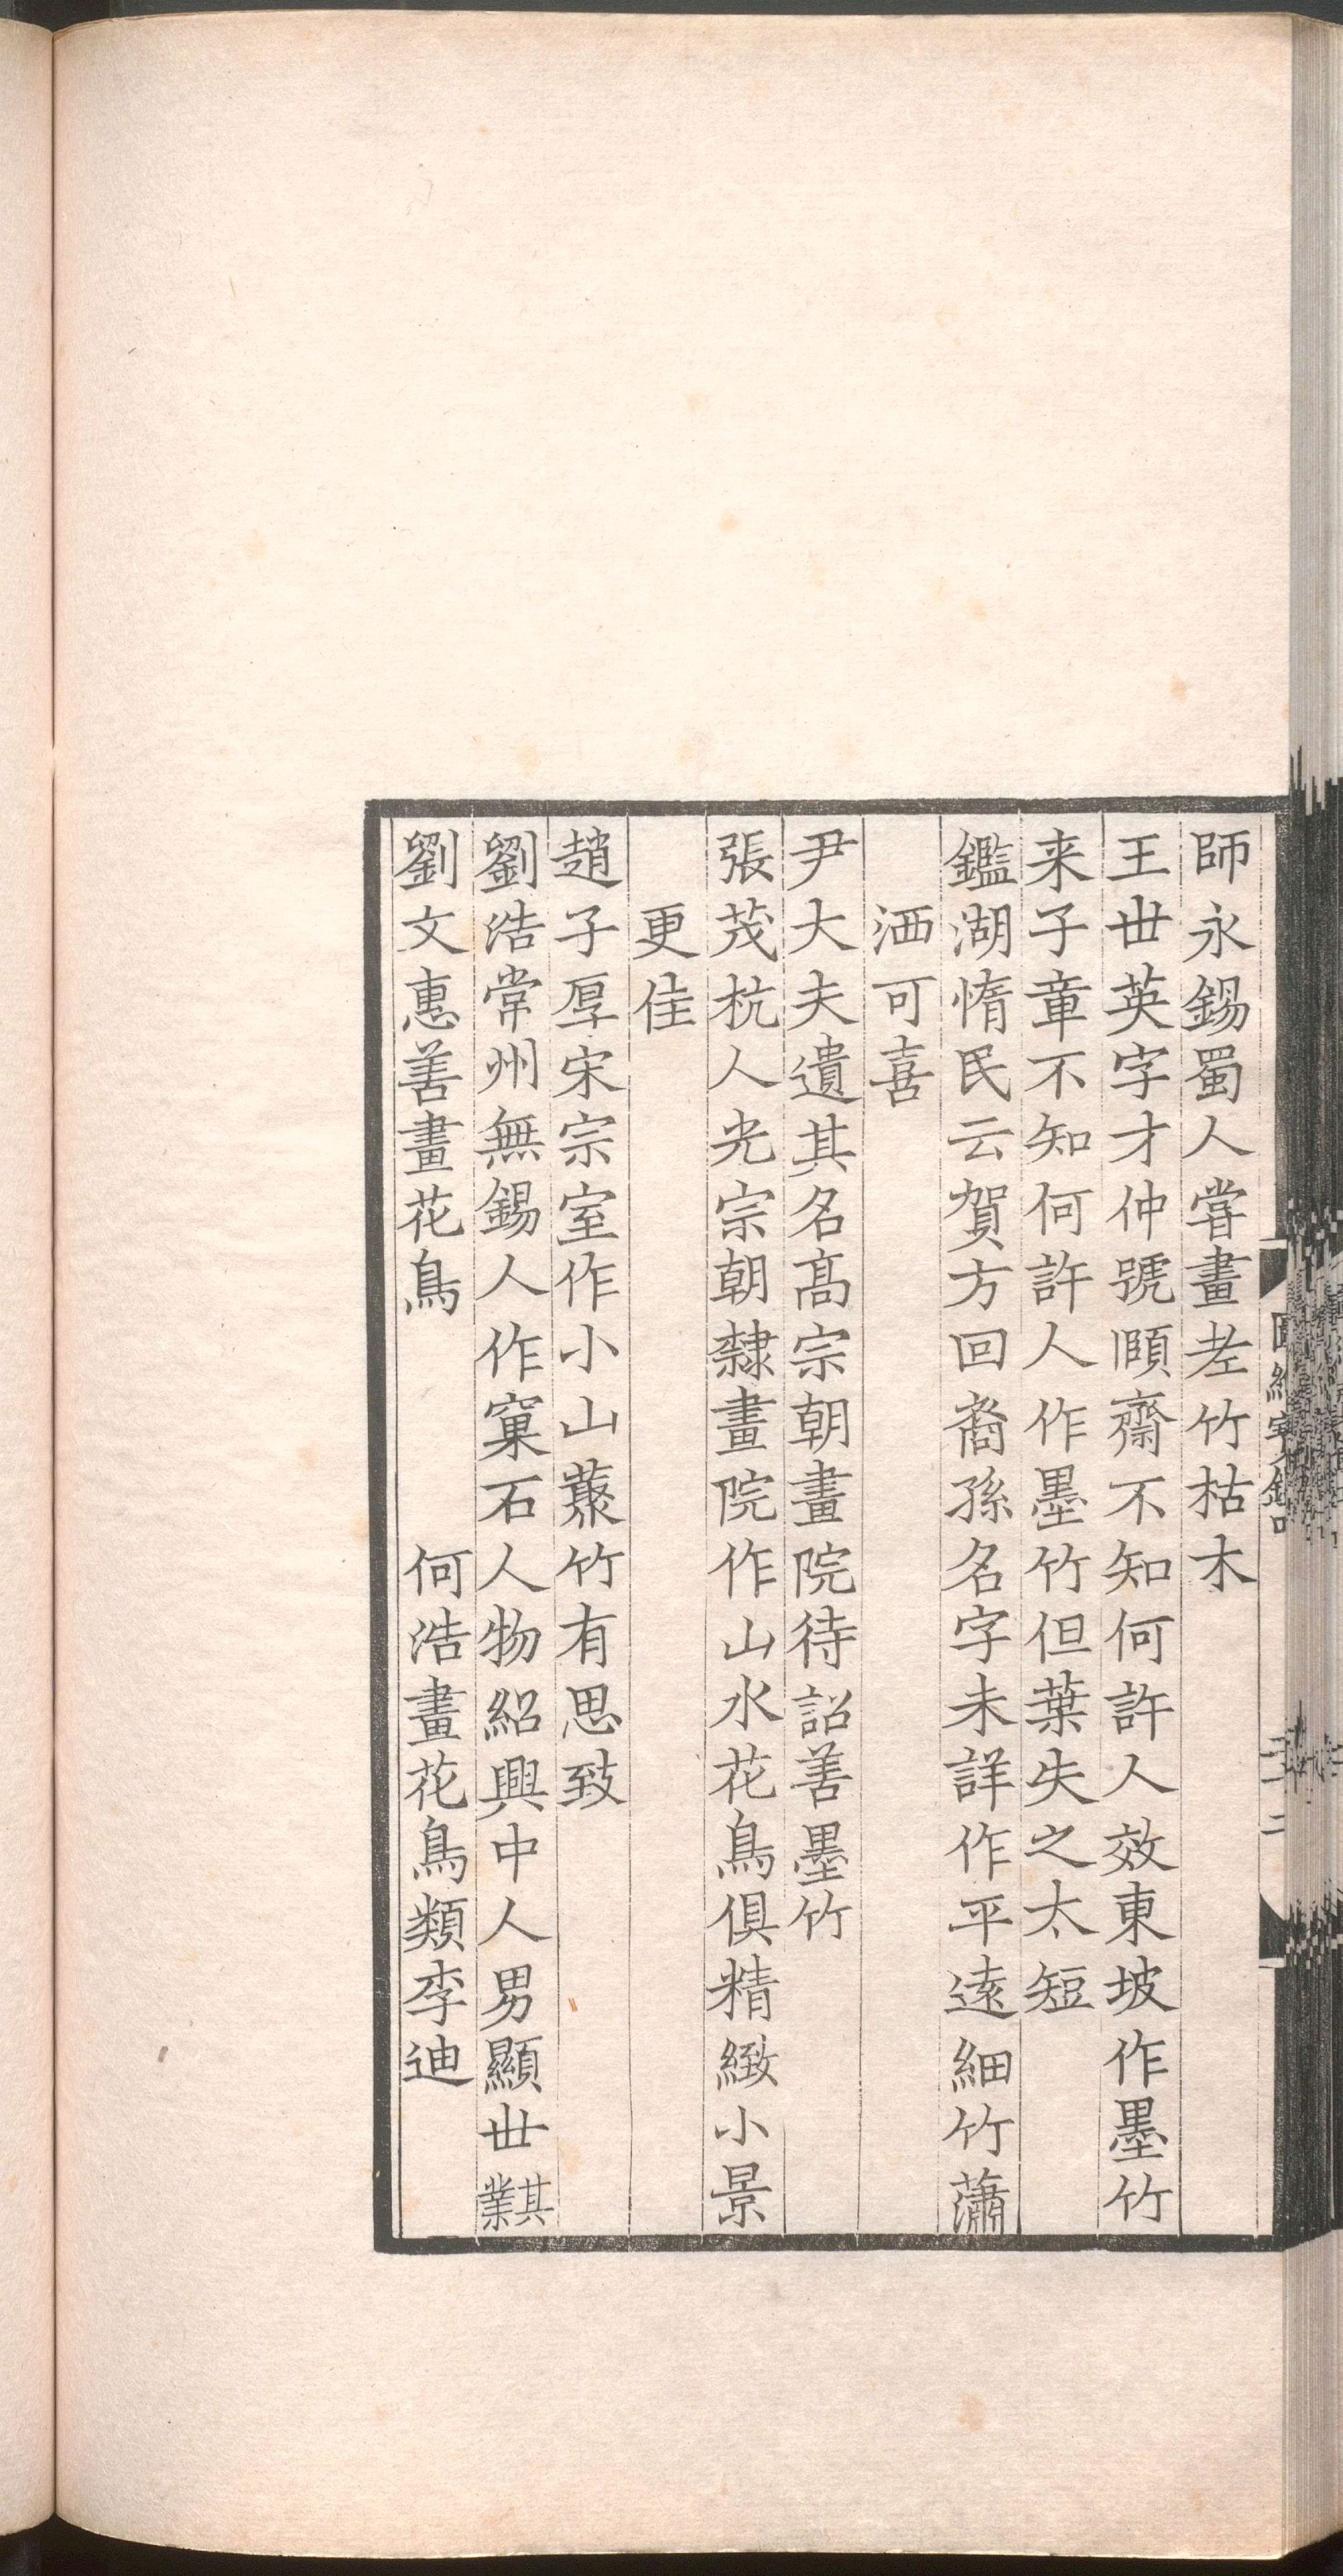 師永錫蜀人嘗畫老竹枯木
王世英字才仲號頤齋不知何許人效東坡作墨竹
来子章不知何許人作墨竹但葉失之太短
鑑湖惰民云賀方回裔孫名字未詳作平遠細竹瀟
洒可喜
尹大夫遺其名髙宗朝畫院待詔善墨竹
張茂杭人光宗朝隸畫院作山水花鳥俱精緻小景
更佳
趙子厚宋宗室作小山藂竹有思致
劉浩常州無錫人作窠石人物紹興中人男顯世其業
劉文惠善畫花鳥 何浩畫花鳥類李迪